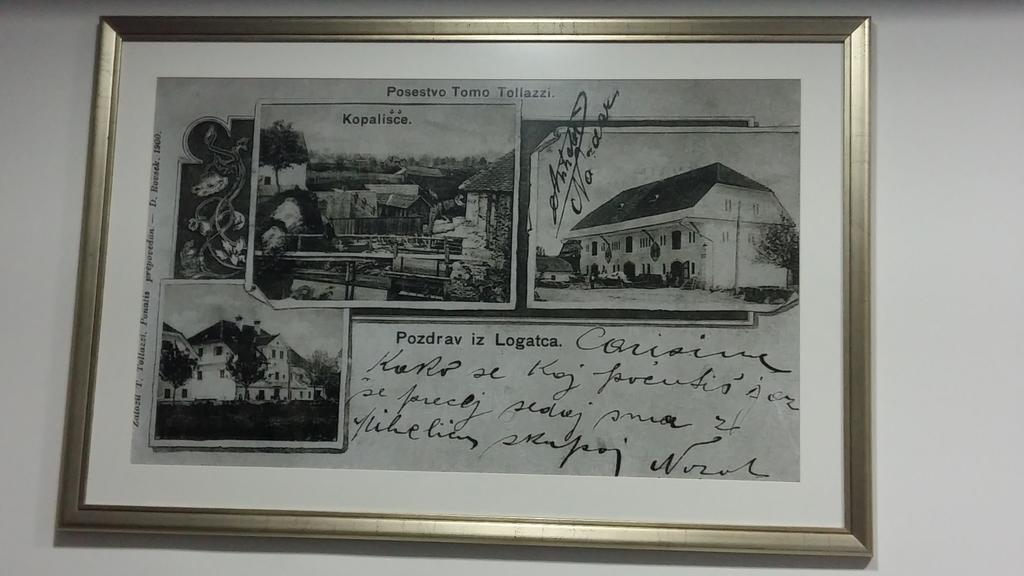 Posestvo Tomo Tollazzi.
Kopališče.
Založil T. Tollazzi. Ponatis prepovedan – D. Rovšek. 1900.
Pozdrav iz Logatca. Carissima
Kako se kaj počutiš jaz
še precej sedaj sma z
skupaj